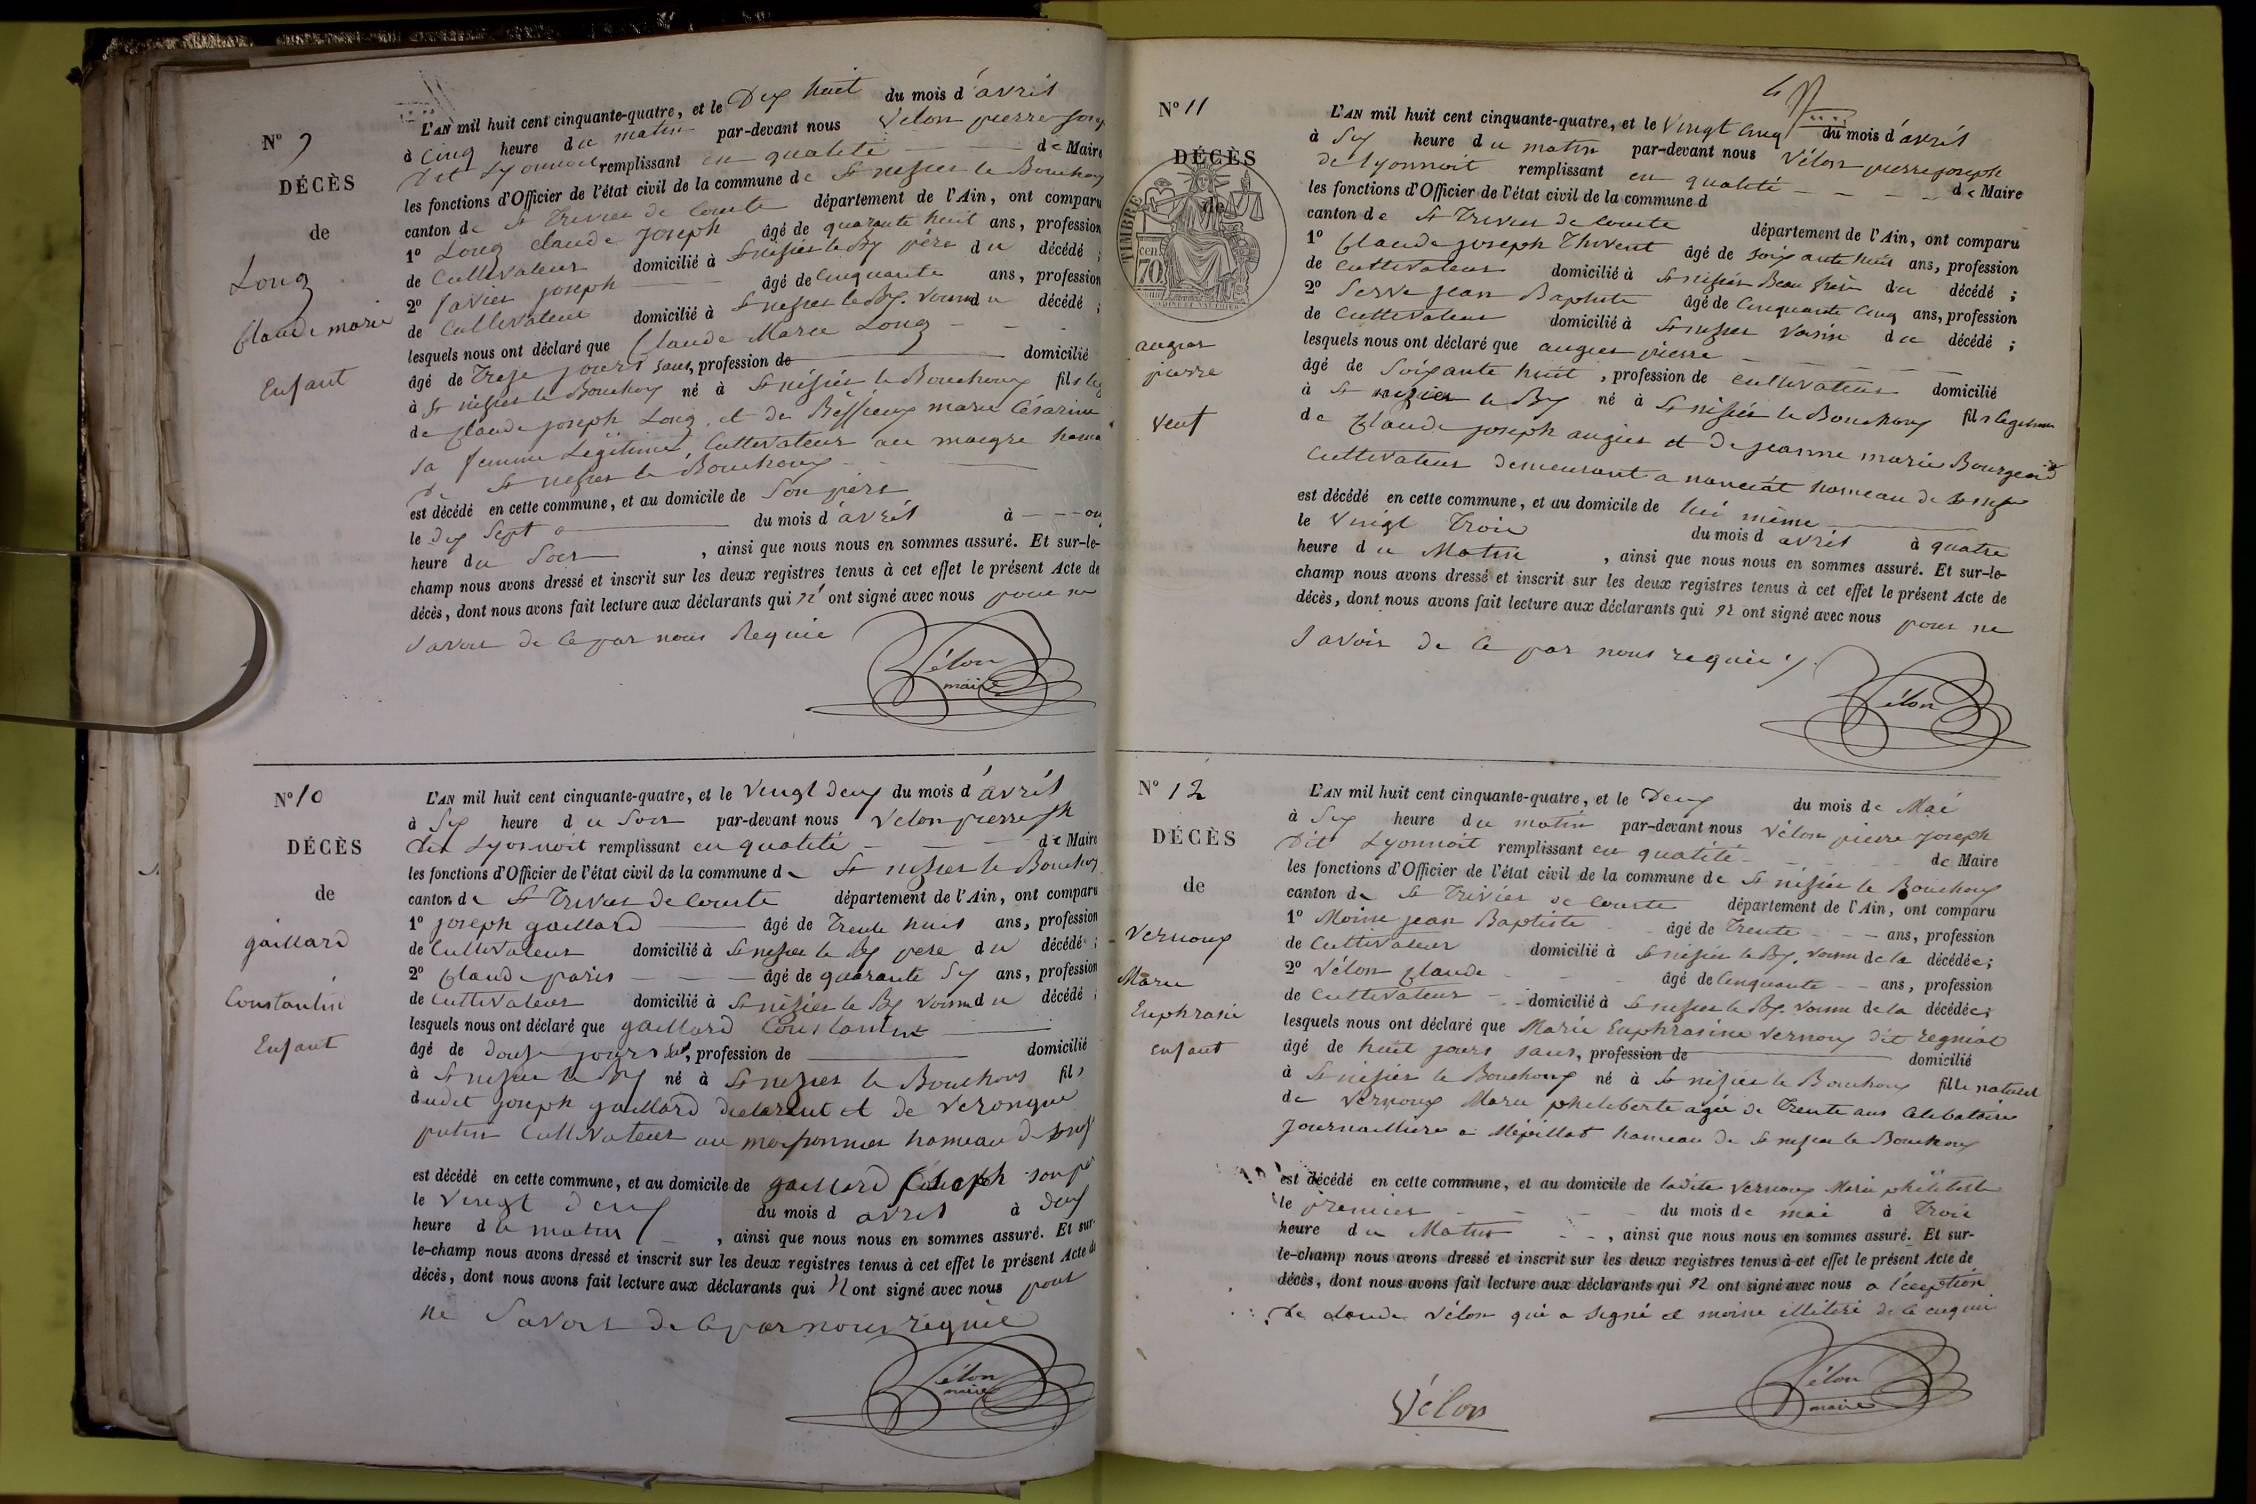 N° 9
DÉCÈS
de
Long
Claude marie
Enfant
L'AN mil huit cent cinquante-quatre, et le Dix huit du mois d'avril
à Cinq heure du matin par-devant nous Vélon pierre
Dit Lyonnoit remplissant en qualité de Maire
les fonctions d'Officier de l'état civil de la commune de St nizier le Bouchoux
canton de St Trivier de Courte département de l'Ain, ont comparu
1° Long Claude Joseph âgé de quarante huit ans, profession
de Cultivateur domicilié à St nizier le Bx père du décédé ;
2° Favier Joseph âgé de Cinquante ans, profession
de Cultivateur domicilié à St nizier le Bx. voisin du décédé ;
lesquels nous ont déclaré que Claude Marie Long
âgé de Treize jours sans, profession de domicilié
à St nizier le Bouchoux né à St nizier le Bouchoux fils leg
de Claude joseph Long, et de Béssieux marie Césarine
sa femme Légitime, Cultivateur au maigre hame
St nizier le Bouchoux
est décédé en cette commune, et au domicile de Son père
le dix Sept du mois d'avril à
heure du Soir , ainsi que nous nous en sommes assuré. Et sur-le-
champ nous avons dressé et inscrit sur les deux registres tenus à cet effet le présent Acte de
décès, dont nous avons fait lecture aux déclarants qui n' ont signé avec nous pour ne
savoir de ce par nous Requie
Vélon
maire
N° 10
DÉCÈS
de
gaillard
Constantin
Enfant
L'AN mil huit cent cinquante-quatre, et le Vingt deux du mois d'avril
à Six heure du Soir par-devant nous Vélon pierre jph
dit Lyonnoit remplissant en qualité de Maire
les fonctions d'Officier de l'état civil de la commune de St nizier le Bouchoux
canton de St Trivier de Courte département de l'Ain, ont comparu
1° joseph gaillard âgé de Trente huit ans, profession
de Cultivateur domicilié à St nizier le Bx pere du décédé ;
2° Claude paris âgé de quarante Six ans, profession
de Cultivateur domicilié à St nizier le Bx voisin du décédé ;
lesquels nous ont déclaré que gaillard Constantin
âgé de douze jours , profession de domicilié
à St nizier le Bx né à St nizier le Bouchoux fils
dudit joseph gaillard declarent et de Veronque
putin Cultivateur au moissonnier hameau de
est décédé en cette commune, et au domicile de gaillard joseph son
le Vingt deux du mois d avril à deux
heure du matin , ainsi que nous nous en sommes assuré. Et sur-
le-champ nous avons dressé et inscrit sur les deux registres tenus à cet effet le présent Acte de
décès, dont nous avons fait lecture aux déclarants qui n ont signé avec nous pour
ne Savoir de ce par nous réquie
Vélon
maire
N° 11
DÉCÈS
de
TIMBRE
70
cen
augier
pierre
Veuf
L'AN mil huit cent cinquante-quatre, et le Vingt Cinq du mois d'avril
à Six heure du matin par-devant nous Vélon pierre joseph
de Lyonnoit remplissant en qualité de Maire
les fonctions d'Officier de l'état civil de la commune d
canton de St Trivier de Courte département de l'Ain, ont comparu
1° Claude joseph Thivent âgé de Soixante huit ans, profession
de Cultivateur domicilié à St nizier Beau frère du décédé ;
2° Serve jean Baptiste âgé de Cinquante Cinq ans, profession
de Cultivateur domicilié à St nizier Voisin du décédé ;
lesquels nous ont déclaré que augier pierre
âgé de Soixante huit , profession de cultivateur domicilié
à St nizier le Bx né à St nizier le Bouchoux fils legitime
de Claude joseph augier et de jeanne marie Bourgeoid
Cultivateur demeurant a hameau de
est décédé en cette commune, et au domicile de lui même
le Vingt Trois du mois d avril à quatre
heure du Matin , ainsi que nous nous en sommes assuré. Et sur-le-
champ nous avons dressé et inscrit sur les deux registres tenus à cet effet le présent Acte de
décès, dont nous avons fait lecture aux déclarants qui n ont signé avec nous pour ne
Savoir de ce par nous requie
Vélon
N° 12
DÉCÈS
de
Vernoux
Marie
Euphrasie
enfant
L'AN mil huit cent cinquante-quatre, et le Deux du mois de Mai
à Six heure du matin par-devant nous Vélon pierre joseph
Dit Lyonnoit remplissant en qualité de Maire
les fonctions d'Officier de l'état civil de la commune de St nizier le Bouchoux
canton de St Trivier de Courte département de l'Ain, ont comparu
1° Moine jean Baptiste âgé de Trente ans, profession
de Cultivateur domicilié à St nizier le Bx. voisin de la décédée;
2° Vélon Claude âgé de Cinquante ans, profession
de Cultivateur domicilié à St nizier le Bx. voisin de la décédée;
lesquels nous ont déclaré que Marie Euphrasine Vernoux dit regniat
âgé de huit jours sans, profession de domicilié
à St nizier le Bouchoux né à St nizier le Bouchoux fille naturel
de Vernoux Marie philiberte agée de Trente ans Celibataire
journaillière a Mépillat hameau de St nizier le Bouchoux
est décédé en cette commune, et au domicile de ladite Vernoux Marie philiberte
le premier du mois de mai à Trois
heure du Matin , ainsi que nous nous en sommes assuré. Et sur-
le-champ nous avons dressé et inscrit sur les deux registres tenus à cet effet le présent Acte de
décès, dont nous avons fait lecture aux déclarants qui n ont signé avec nous a l'éception
de claude Vélon qui a signé et moine illitéré de ce enquie
Vélon
Vélon
maire